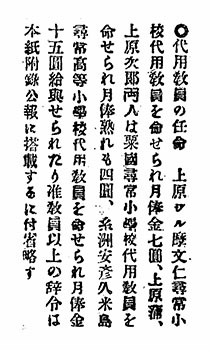 〇代用敎員の任命　上原ツル摩文仁尋常小
校代用敎員を命せられ月俸金七圓、上原蒲、
上原次郎両人は粟國尋常小學校代用敎員を
命せられ月俸孰れも四圓、糸洲安彦久米島
尋常高等小學校代用敎員を命せられ月俸金
十五圓給與せられたり准敎員以上の辞令は
本紙附錄公報に搭載するに付省略す